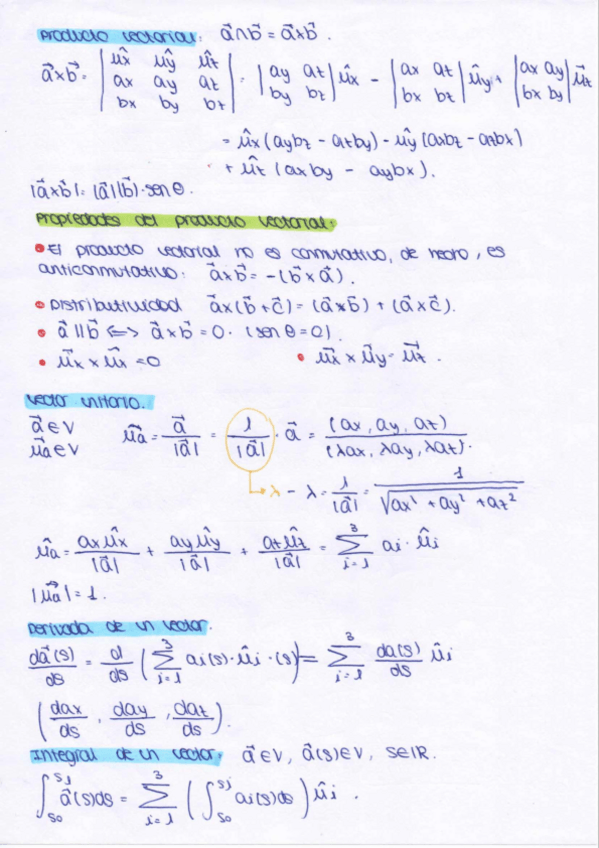 Producto vectorial: a⃗∧b⃗ = a⃗×b⃗.
a⃗×b⃗ = | ûx ûy ûz ; ax ay az ; bx by bz | = | ay az ; by bz | ûx − | ax az ; bx bz | ûy + | ax ay ; bx by | u⃗z
= ûx (aybz − azby) − ûy (axbz − azbx)
+ ûz (axby − aybx).
|a⃗×b⃗| = |a⃗||b⃗|·senθ.
Propiedades del producto vectorial:
• El producto vectorial no es conmutativo, de hecho, es
anticonmutativo: a⃗×b⃗ = −(b⃗×a⃗).
• Distributividad a⃗×(b⃗+c⃗) = (a⃗×b⃗) + (a⃗×c⃗).
• a⃗ || b⃗ <=> a⃗×b⃗ = 0. (senθ=0).
• u⃗x × u⃗x = 0 • u⃗x × u⃗y = u⃗z.
Vector unitario.
a⃗ ∈ V
u⃗a ∈ V
u⃗a = a⃗/|a⃗| = 1/|a⃗| · a⃗ = (ax, ay, az)/(λax, λay, λaz).
↳ λ − λ = 1/|a⃗| = 1/√(ax² + ay² + az²)
ûa = axûx/|a⃗| + ayûy/|a⃗| + azûz/|a⃗| = Σ_{i=1}^{3} ai·ûi
|u⃗a| = 1.
Derivada de un vector.
da⃗(s)/ds = d/ds (Σ_{i=1}^{3} ai(s)·ûi·(s)) = Σ_{i=1}^{3} da(s)/ds ûi
(dax/ds, day/ds, daz/ds).
Integral de un vector: a⃗ ∈ V, a⃗(s) ∈ V, s ∈ IR.
∫_{s0}^{sj} a⃗(s)ds = Σ_{i=1}^{3} (∫_{s0}^{sj} ai(s)ds) ûi.